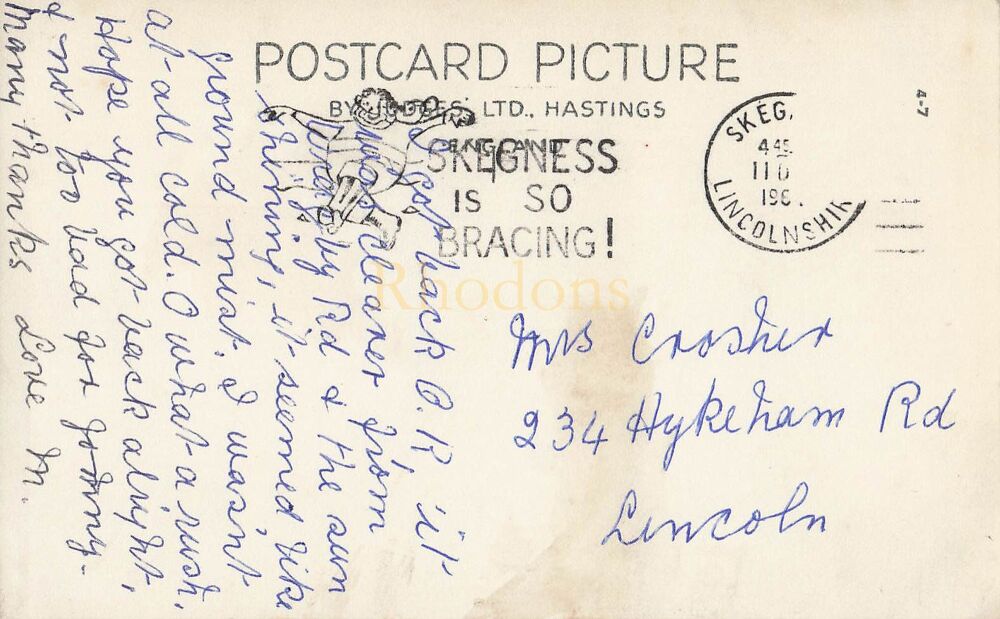 POSTCARD PICTURE
BY JUDGES, LTD., HASTINGS
ENGLAND
4-7
SKEGNESS
IS SO
BRACING!
SKEG
4 45
LINCOLNSHI
I got back O.K it
was clearer from
Wragby Rd & the sun
shining, it seemed like
ground mist. I wasn't
at all cold. O what a rush.
Hope you got back alright,
& not too bad for Jommy.
Many thanks Love M.
Mrs Crosher
234 Hykeham Rd
Lincoln
Rhodons